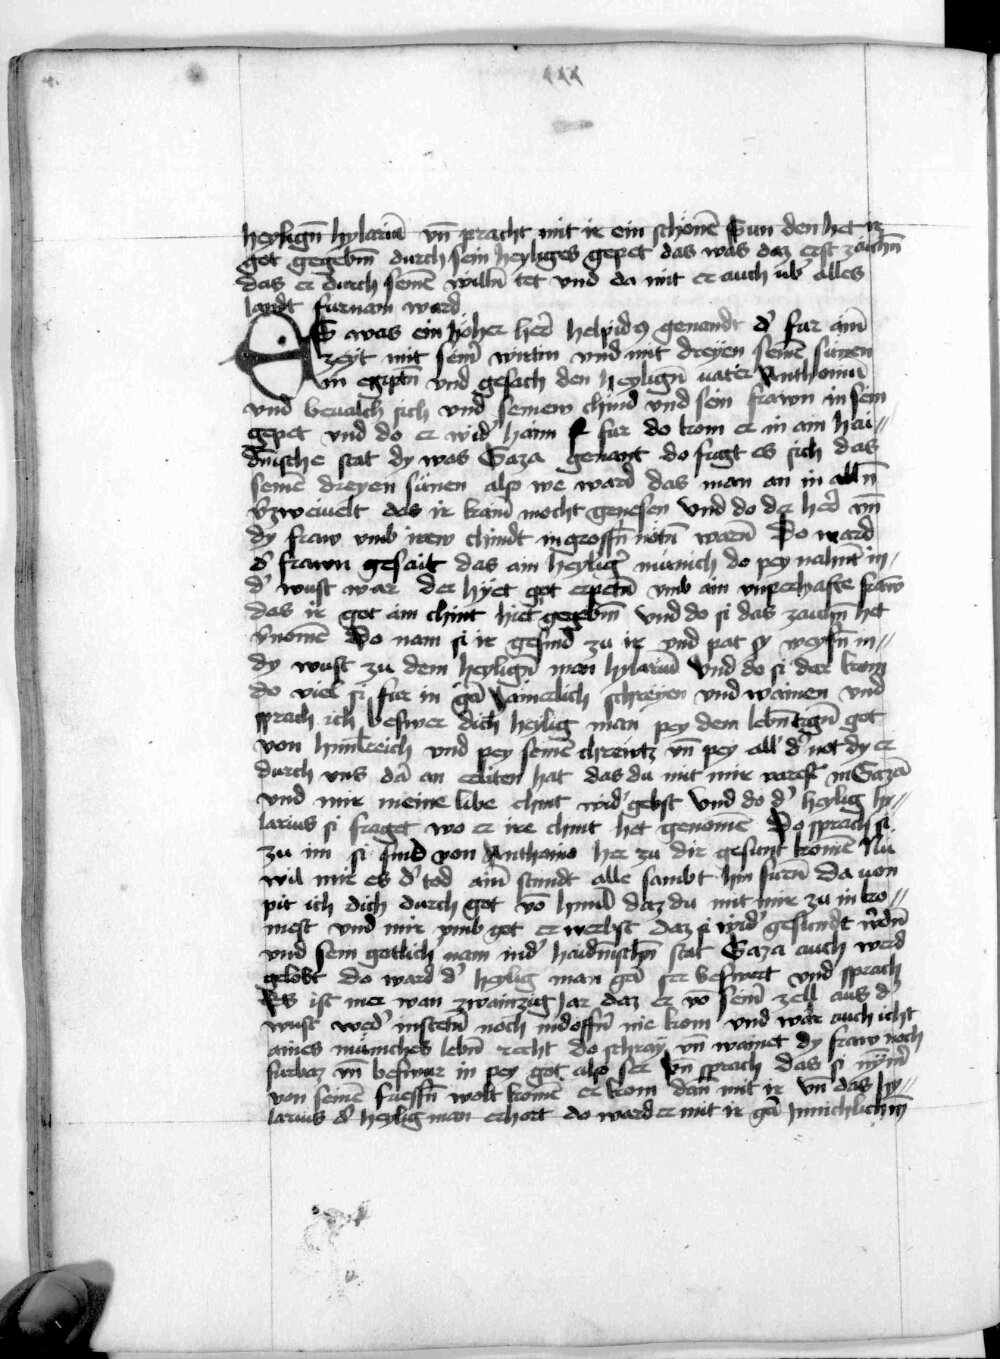 xxx
heyligñ hylariũ vñ pracht mit ir ein schonẽ Sun den het ir
got gegebm̃ durch sein heyliges gepet das was daz erst zaichñ
das er durch semẽ willñ tet vnd da mit er auch vbʼ alles
landt furnam ward
ES was ein hoher herr helpidꝰ genandt dʼ fur aim̃
zeyt mit seinʼ wirtin vnd mit dreyen seinẽ sünen
in egiptñ vnd gesach den heyligñ vater Anthoniũ
vnd beualch sich vnd seinew chind vnd sein frawn in sein
gepet vnd do er widʼ haim fur do kom er in ain hai//
dnische stat dy was Gaza genant do fugt es sich das
seinẽ dreyen sünen also we ward das man an in alln̄
v̄zweiuelt das ir kainʼ mocht genesen Vnd do der herʼ vñ
dy fraw vmb irew chindt in grossñ nötñ warñ Do ward
dʼ frawn gesait das ain heyligʼ münich do pey nahnt in/
dʼ wust war der hyet got erpetñ vmb ain vnperhafte fraw
das ir got ain chint hiet gegebm̃ vnd do si das zaichñ het
v̄nomẽ Do nam si ir gesind zu ir vnd pat sy weysñ in//
dy wust zu dem heyligñ man hylariũ Vnd do si dar kom
do viel si fur in gãcz Jamerlich schreyen vnd wainen vnd
sprach ich beswer dich heylig man pey dem lebnntigñ got
von himlreich vnd pey seinẽ chrewtz vñ pey allʼ dʼ not dy er
durch vns dar an erliten hat das du mit mir varest in Gazã
vnd mir meine libe chint widʼ gebst Vnd do dʼ heylig hy//
larius si fraget wo er ire chint het genomẽ Do sprach si
zu im si sind von Anthonio her zu dir gesunt komẽ Nu
wil mir es dʼ tod ainʼ stundt alle sambt hin furñ Da von
pit ich dich durch got võ himl daz du mit mir zu in ko//
mest vnd mir vmb got erwerbst daz si widʼ gesundt w̄dñ
vnd sein gotlich nam in dʼ haidnischñ stat Gaza auch werd
gelobt do ward dʼ heylig man gãcz ser beswert vnd sprach
Es ist mer wan zwainzig Jar daz er võ seinʼ zell aus dʼ
wust wedʼ in stetñ noch in dorffñ nie kom vnd wär auch icht
aines müniches lebñ recht do schray vñ wainet dy fraw noch
furbaz vñ beswur in pey got also ser vñ sprach das si nỹmʼ
von seinẽ fuessñ wolt komẽ er kom dan mit ir vñ das hy//
larius dʼ heylig man erhort do ward er mit ir gãcz Jnnichlichñ